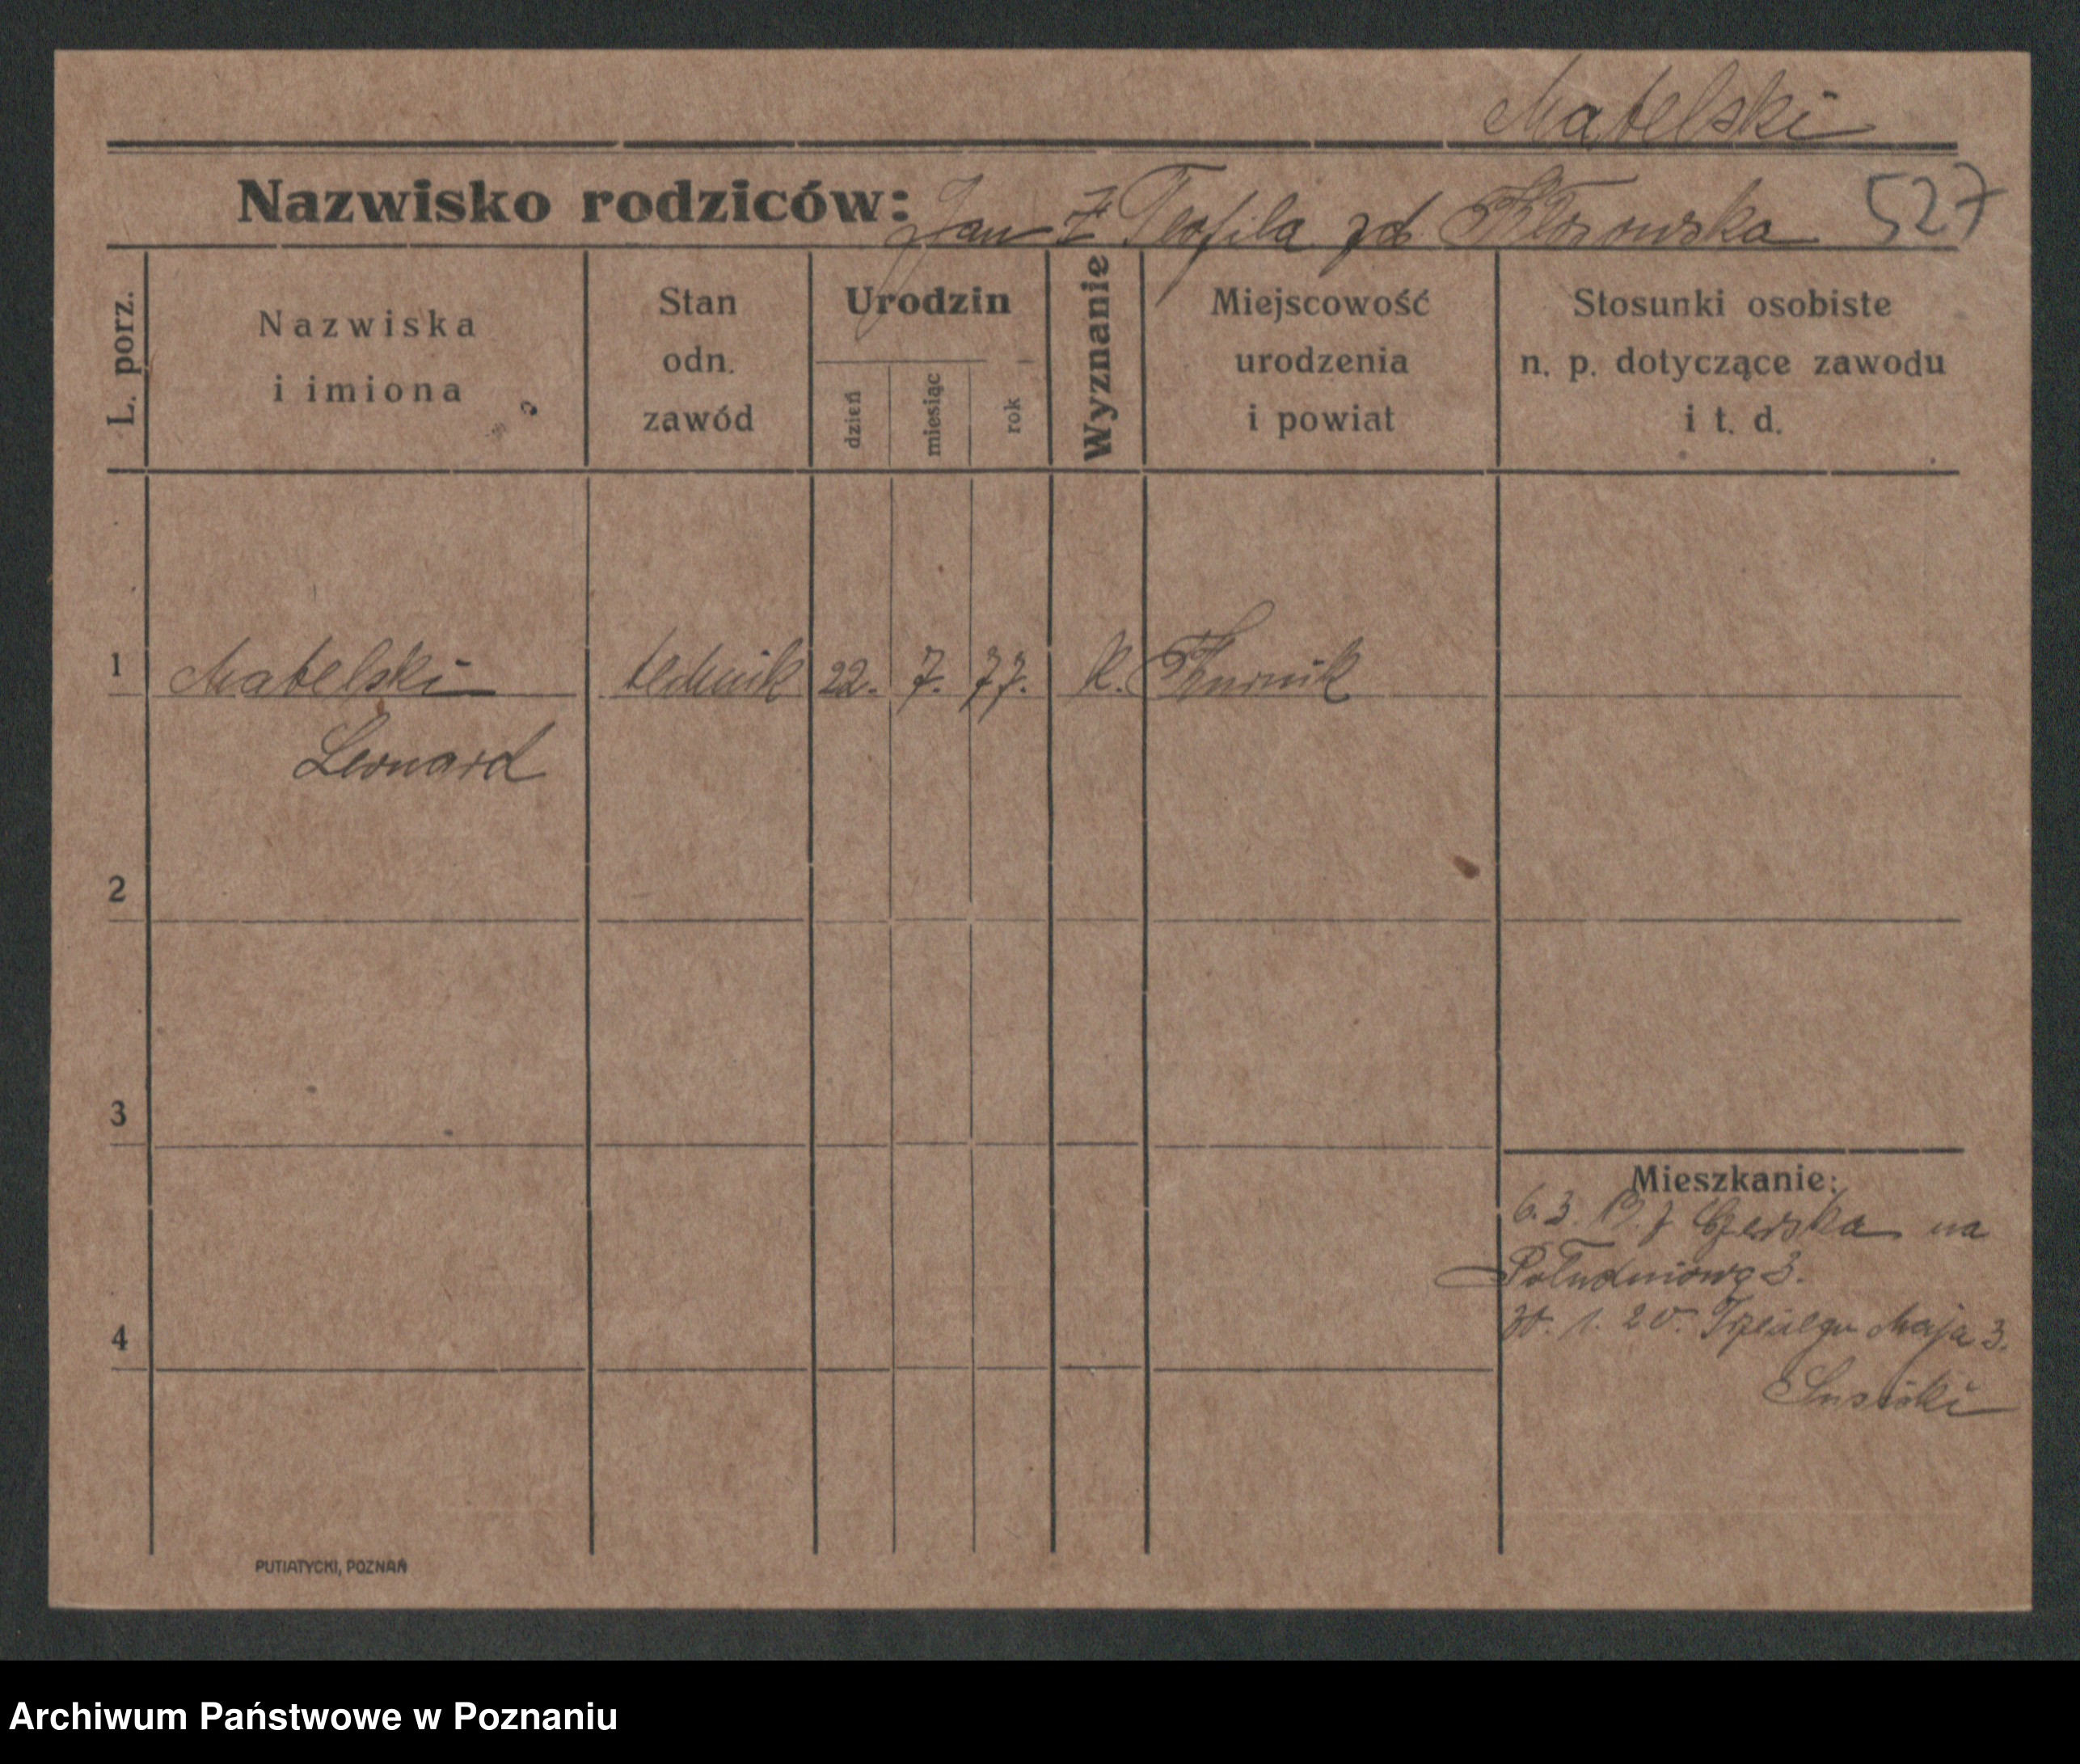 Matelski
Nazwisko rodziców: Jan Teofila zd 527
L. porz.
Nazwiska
i imiona
Stan
odn.
zawód
Urodzin
dzień
miesiąc
rok
Wyznanie
Miejscowość
urodzenia
i powiat
Stosunki osobiste
n. p. dotyczące zawodu
i t. d.
1 Matelski technik 22. 7. 77. K. Kurnik
Leonard
2
3
4
Mieszkanie:
6. 3. 19. z Czerska na
Południową 3.
1. 20. Trzeciego Maja 3.
PUTIATYCKI, POZNAŃ
Archiwum Państwowe w Poznaniu